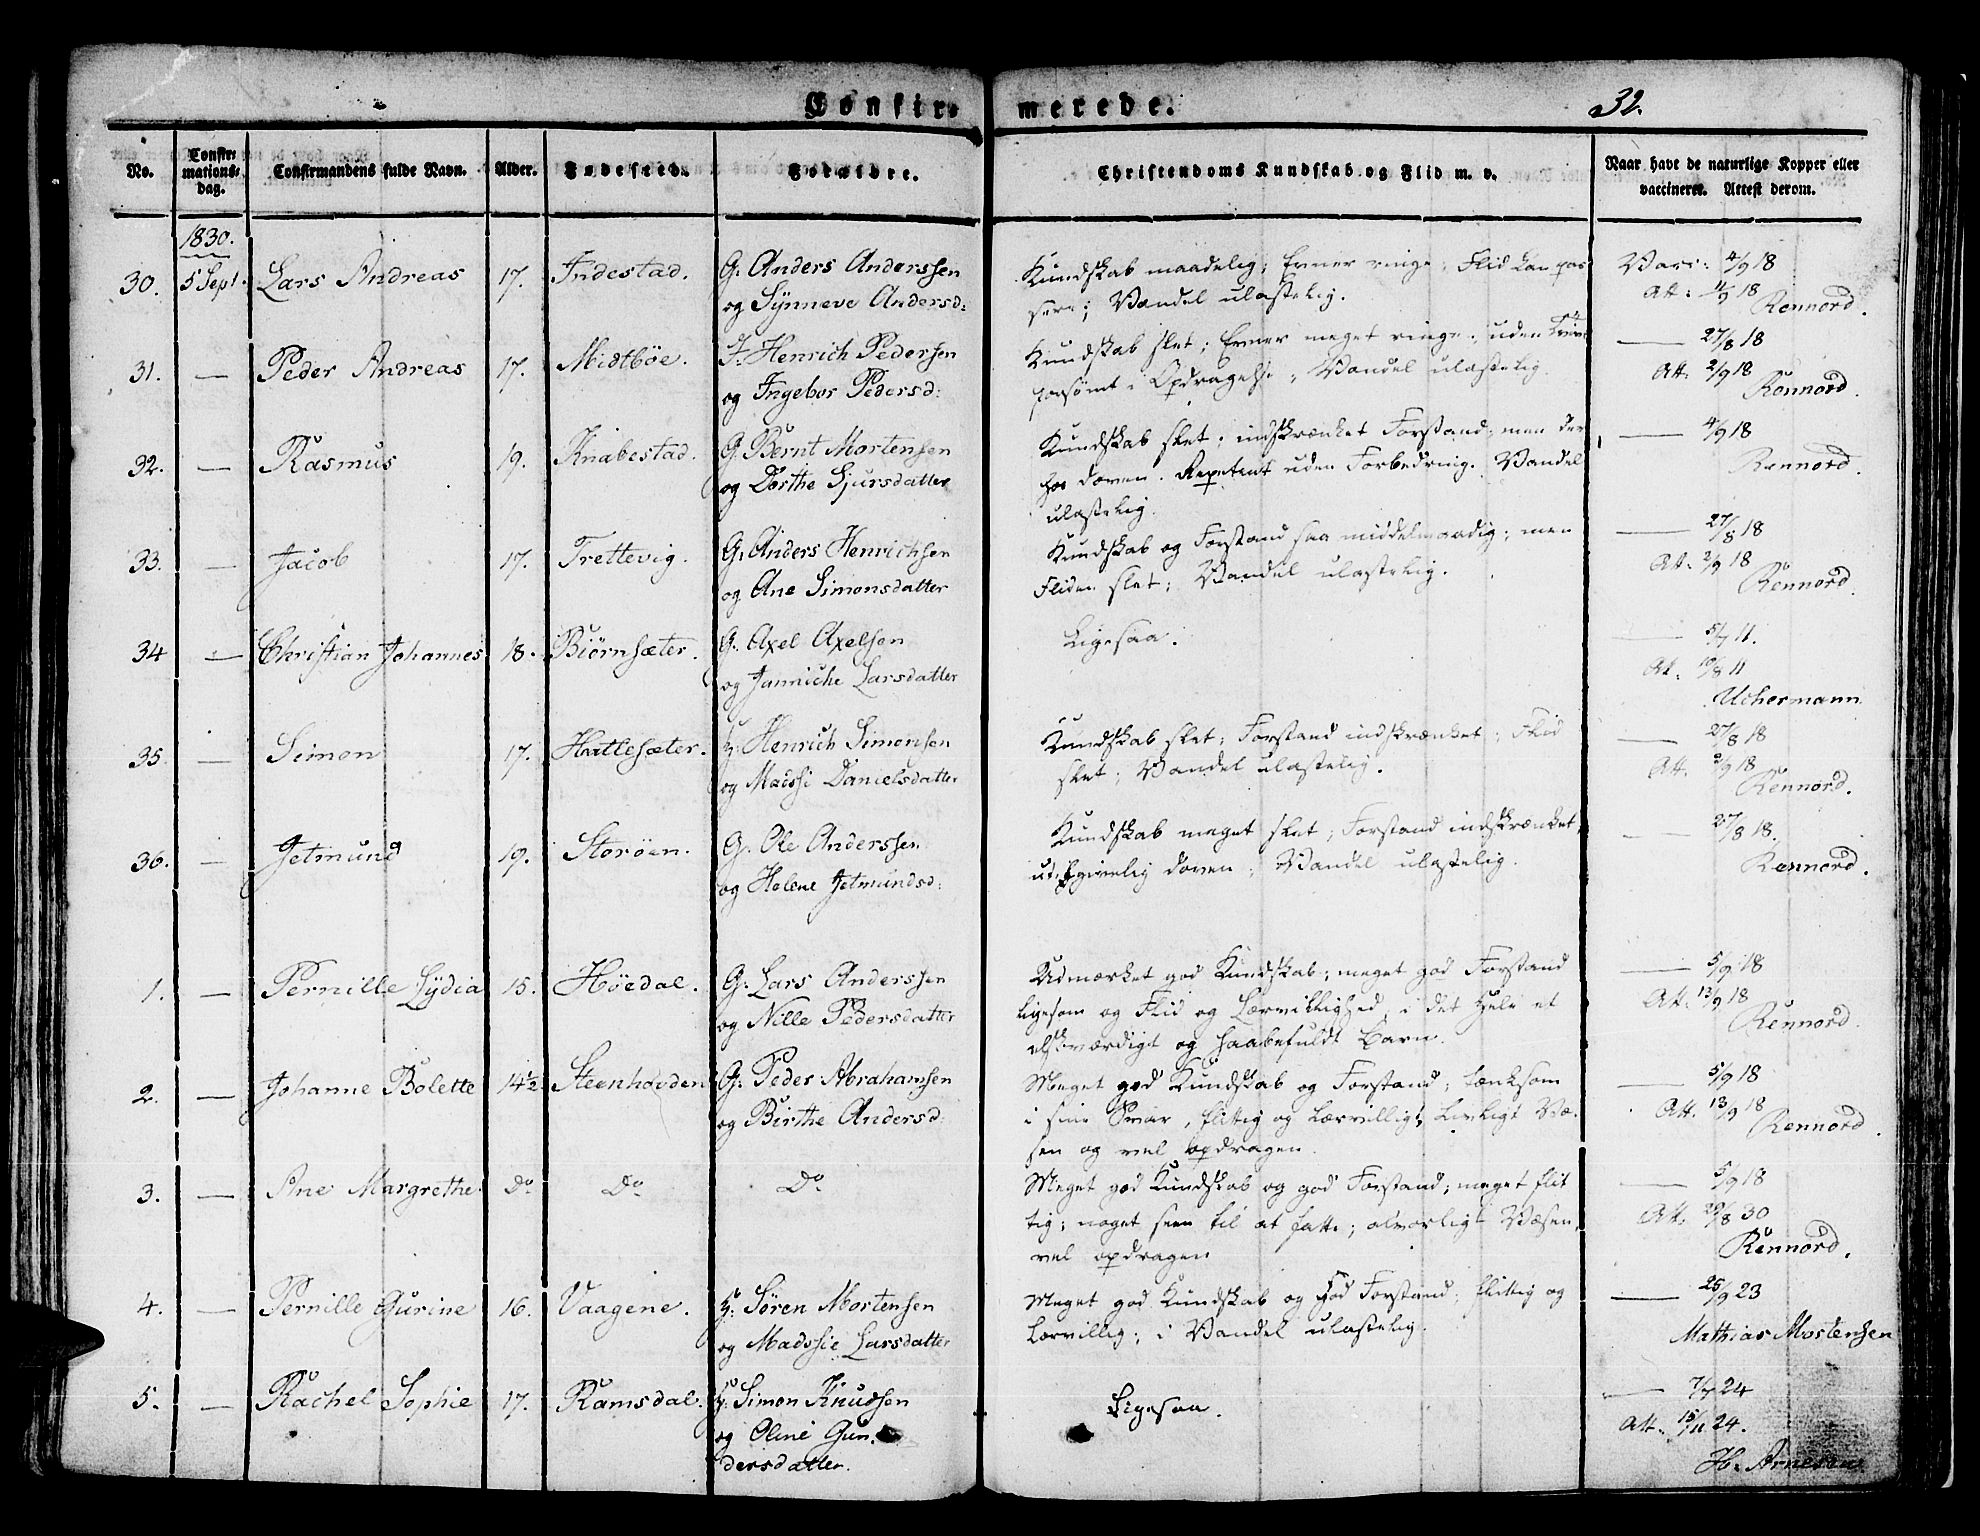 Confir-merede.
32.
No.
Confir-
mations-
dag.
Confirmandens fulde Navn.
Alder.
Fødested.
Forældre.
Christendoms Kundskab og Flid m. v.
Naar havt de naturlige Kopper eller
vaccineret. Attest derom.
1830.
30. 5 Sept. Lars Andreas 17. Indestad. G. Anders Anderssen
og Synneve Andersd:
Kundskab maadelig; Evner ringe; Flid kan pas
sere; Vandel ulastelig.
Vacc: 4/9 18
Att: 11/9 18
Rennord.
31. — Peder Andreas 17. Midtböe. I. Henrich Pedersen
og Ingebor Pedersd:
Kundskab slet; Evner meget ringe; uden Tvivl
forsømt i Opdragelse; Vandel ulastelig.
— 27/8 18
Att: 2/9 18
Rennord.
32. — Rasmus 19. Knabestad. G. Bernt Mortensen
og Dorthe Sjursdatter
Kundskab slet; indskrænket Forstand; men der
hos doven. Repetent uden Forbedring. Vandel
ulastelig.
— 4/9 18
Rennord.
33. — Jacob 17. Trettevig. G. Anders Henrichsen
og Ane Simonsdatter
Kundskab og Forstand saa middelmaadig; men
Fliden slet; Vandel ulastelig.
— 27/8 18
Att: 2/9 18
Rennord.
34 — Christian Johannes 18. Biörnsæter. G. Axel Axelsen
og Janniche Larsdatter
Ligesaa.
— 5/7 11.
At: 10/8 11
Uchermann
35 — Simon 17. Hatlesæter. Henrich Simonsen
og Madssi Danielsdatter
Kundskab slet; Forstand indskrænket; Flid
slet; Vandel ulastelig.
— 27/8 18
Att. 2/9 18
Rennord.
36. — Jetmund 19. Storöen. G. Ole Anderssen
og Helene Jetmundsd:
Kundskab meget slet; Forstand indskrænket;
doven; Vandel ulastelig.
— 27/8 18.
Rennord.
1. — Pernille Lydia 15. Höedal. G. Lars Anderssen
og Nille Pedersdatter
Udmærket god Kundskab; meget god Forstand
ligesom og Flid og Lærvillighed, i det Hele et
elskværdigt og haabefuldt Barn.
— 5/9 18
Att. 13/9 18
Rennord.
2. — Johanne Bolette 14½ Steenhovden G. Peder Abrahamsen
og Birthe Andersd:
Meget god Kundskab og Forstand; tænksom
i sine Svar, flittig og lærvillig; Livligt Væ-
sen og vel opdragen.
— 5/9 18
Att. 13/9 18
Rennord.
3. — Ane Margrethe Do Do Do
Meget god Kundskab og god Forstand; meget flit
tig; noget seen til at fatte; alvorligt Væsen,
vel opdragen
— 5/9 18
Att. 29/8 30
Rennord.
4. — Pernille Gurine 16. Vaagene. Sören Mortensen
og Madssie Larsdatter
Meget god Kundskab og god Forstand; flittig og
lærvillig; i Vandel ulastelig.
— 25/9 23
Mathias Mortensen
5. — Rachel Sophie 17. Ramsdal. Simon Knudsen
og Oline Gun-
dersdatter.
Ligesaa.
— 7/7 24
Att. 15/11 24.
H. Arnesen